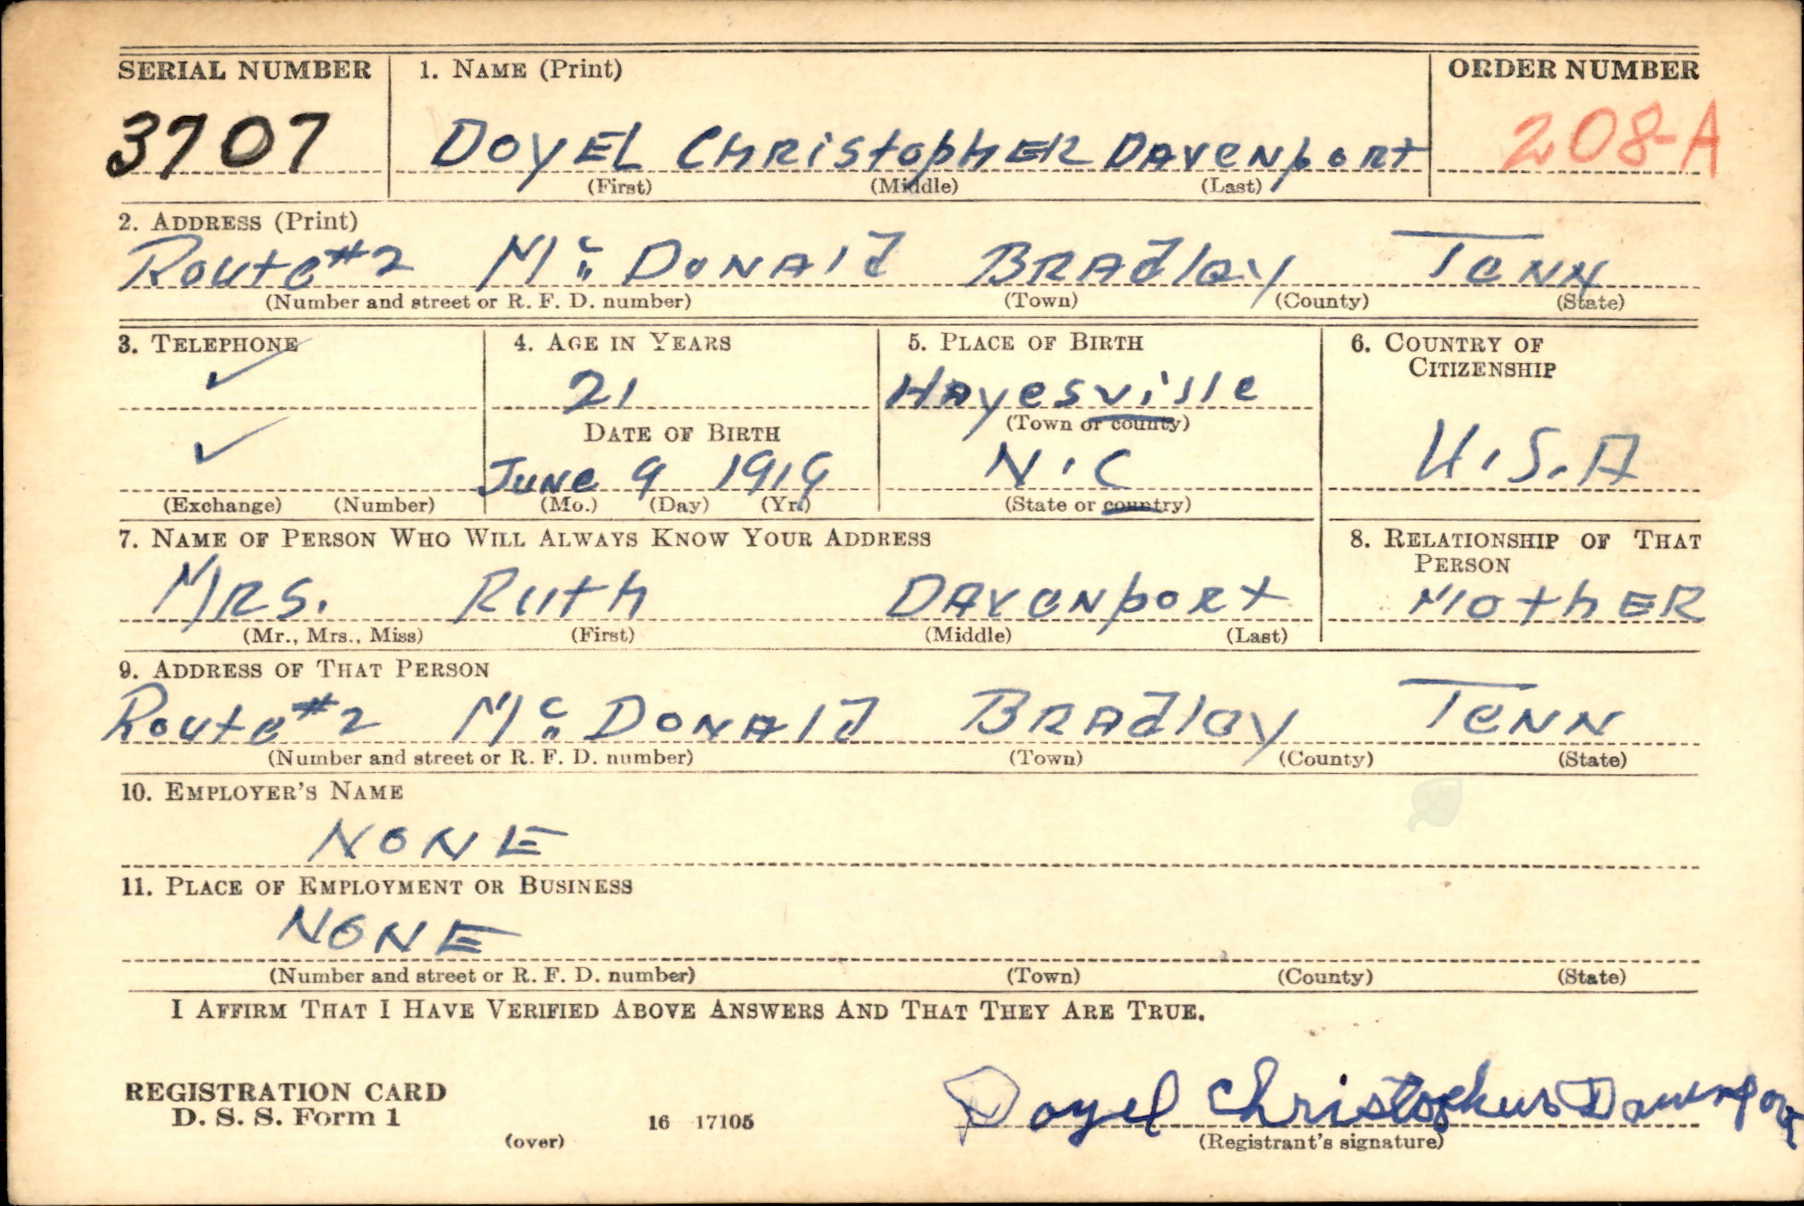 SERIAL NUMBER 1. NAME (Print) ORDER NUMBER
3707 DOYEL CHRISTOPHER DAVENPORT 208-A
(First) (Middle) (Last)
2. ADDRESS (Print)
Route #2 Mc DONALD BRADley TENN
(Number and street or R. F. D. number) (Town) (County) (State)
3. TELEPHONE 4. AGE IN YEARS 5. PLACE OF BIRTH 6. COUNTRY OF CITIZENSHIP
21 HAyesville
DATE OF BIRTH (Town or county)
JUNE 9 1919 N.C U.S.A
(Exchange) (Number) (Mo.) (Day) (Yr.) (State or country)
7. NAME OF PERSON WHO WILL ALWAYS KNOW YOUR ADDRESS 8. RELATIONSHIP OF THAT PERSON
MRS. Ruth DAVENPORT MOthER
(Mr., Mrs., Miss) (First) (Middle) (Last)
9. ADDRESS OF THAT PERSON
Route #2 Mc DONALD BRADley TENN
(Number and street or R. F. D. number) (Town) (County) (State)
10. EMPLOYER'S NAME
NONE
11. PLACE OF EMPLOYMENT OR BUSINESS
NONE
(Number and street or R. F. D. number) (Town) (County) (State)
I AFFIRM THAT I HAVE VERIFIED ABOVE ANSWERS AND THAT THEY ARE TRUE.
REGISTRATION CARD
D. S. S. Form 1 16 17105 Doyel Christopher Davenport
(over) (Registrant's signature)